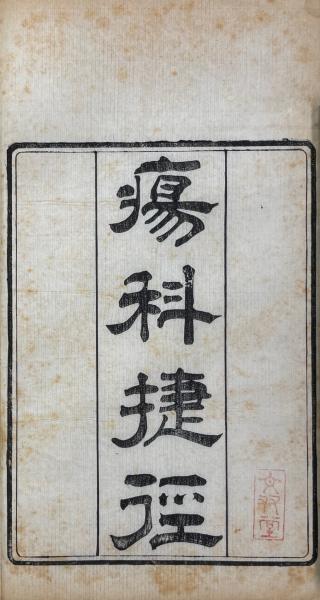 瘍科捷徑